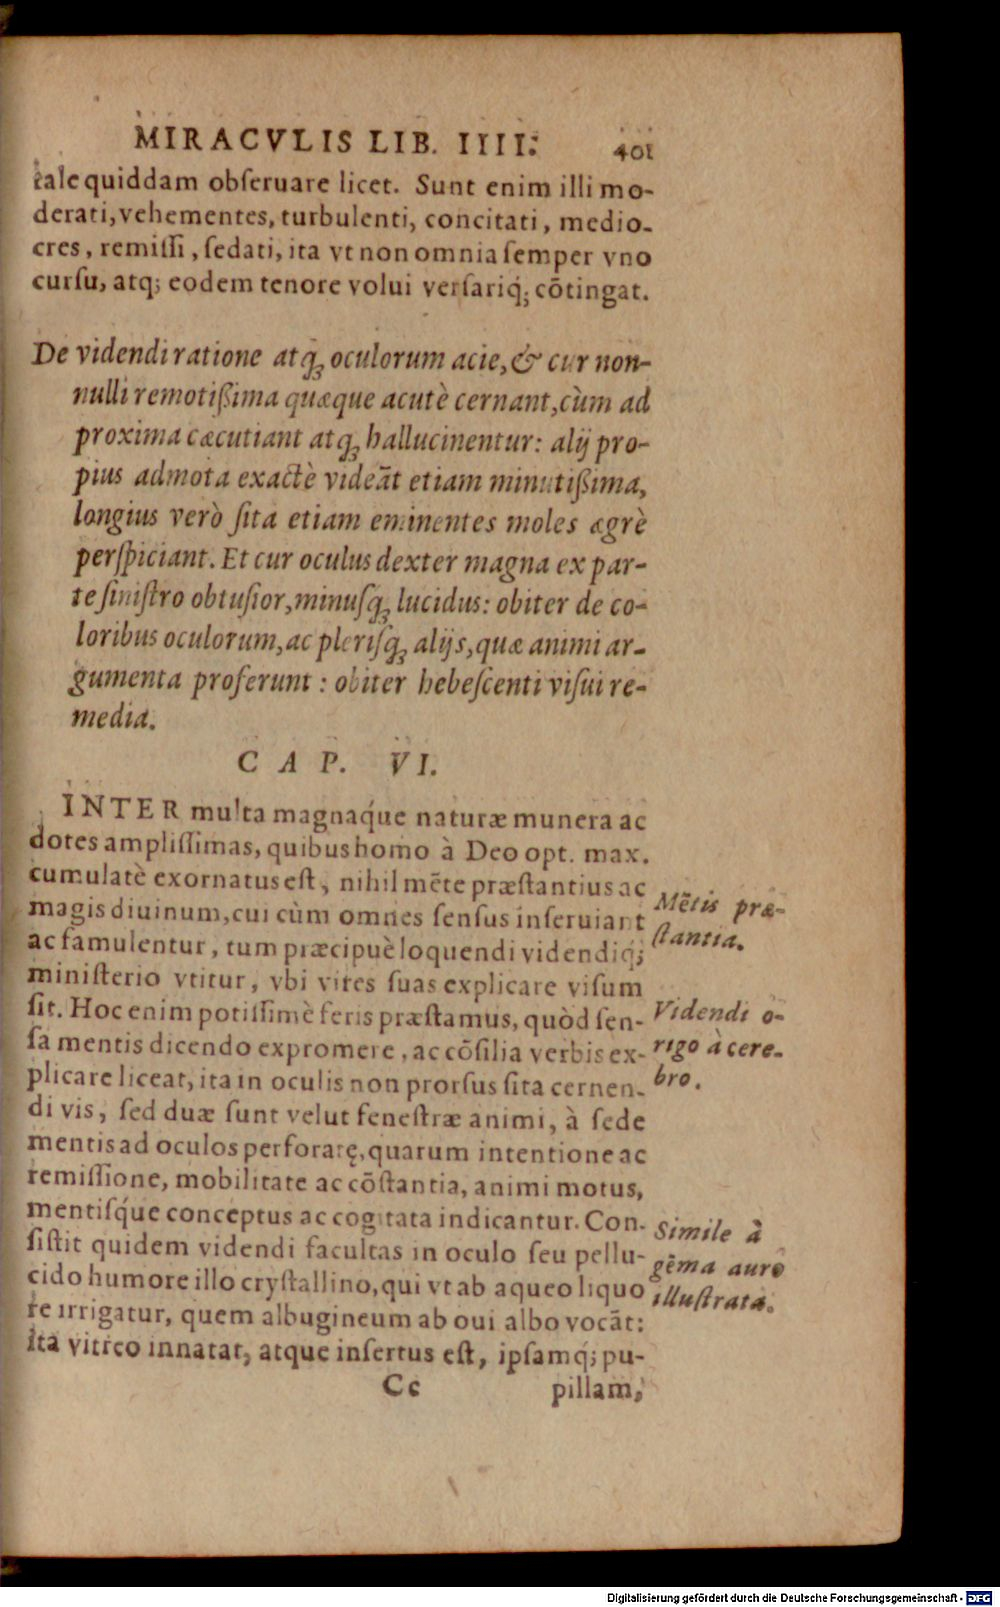 MIRACVLIS LIB. IIII. 401
tale quiddam obſeruare licet. Sunt enim illi mo-
derati, vehementes, turbulenti, concitati, medio-
cres, remiſſi, ſedati, ita vt non omnia ſemper vno
curſu, atq; eodem tenore volui verſariq́; cōtingat.
De videndi ratione atq́ꝫ oculorum acie, & cur non-
nulli remotißima quæque acutè cernant, cùm ad
proxima cæcutiant atq́ꝫ hallucinentur: alij pro-
pius admota exactè videāt etiam minutißima,
longius verò ſita etiam eminentes moles ægrè
perſpiciant. Et cur oculus dexter magna ex par-
te ſiniſtro obtuſior, minuſq́ꝫ lucidus: obiter de co-
loribus oculorum, ac pleriſq́ꝫ alijs, quæ animi ar-
gumenta proferunt : obiter hebeſcenti viſui re-
media.
CAP. VI.
INTER multa magnaq́ue naturæ munera ac
dotes ampliſſimas, quibus homo à Deo opt. max.
cumulatè exornatus eſt, nihil mēte præſtantius ac
magis diuinum, cui cùm omnes ſenſus inſeruiant
ac famulentur, tum præcipuè loquendi videndiq́;
miniſterio vtitur, vbi vires ſuas explicare viſum
ſit. Hoc enim potiſſimè feris præſtamus, quòd ſen-
ſa mentis dicendo expromere, ac cōſilia verbis ex-
plicare liceat, ita in oculis non prorſus ſita cernen-
di vis, ſed duæ ſunt velut feneſtræ animi, à ſede
mentis ad oculos perforatę, quarum intentione ac
remiſſione, mobilitate ac cōſtantia, animi motus,
mentiſq́ue conceptus ac cogitata indicantur. Con-
ſiſtit quidem videndi facultas in oculo ſeu pellu-
cido humore illo cryſtallino, qui vt ab aqueo liquo
re irrigatur, quem albugineum ab oui albo vocāt:
ita vitreo innatat, atque inſertus eſt, ipſamq́; pu-
Cc pillam,
Mētis præ-
ſtantia.
Videndi o-
rigo à cere-
bro.
Simile à
gēma auro
illuſtrata.
Digitalisierung gefördert durch die Deutsche Forschungsgemeinschaft - DFG